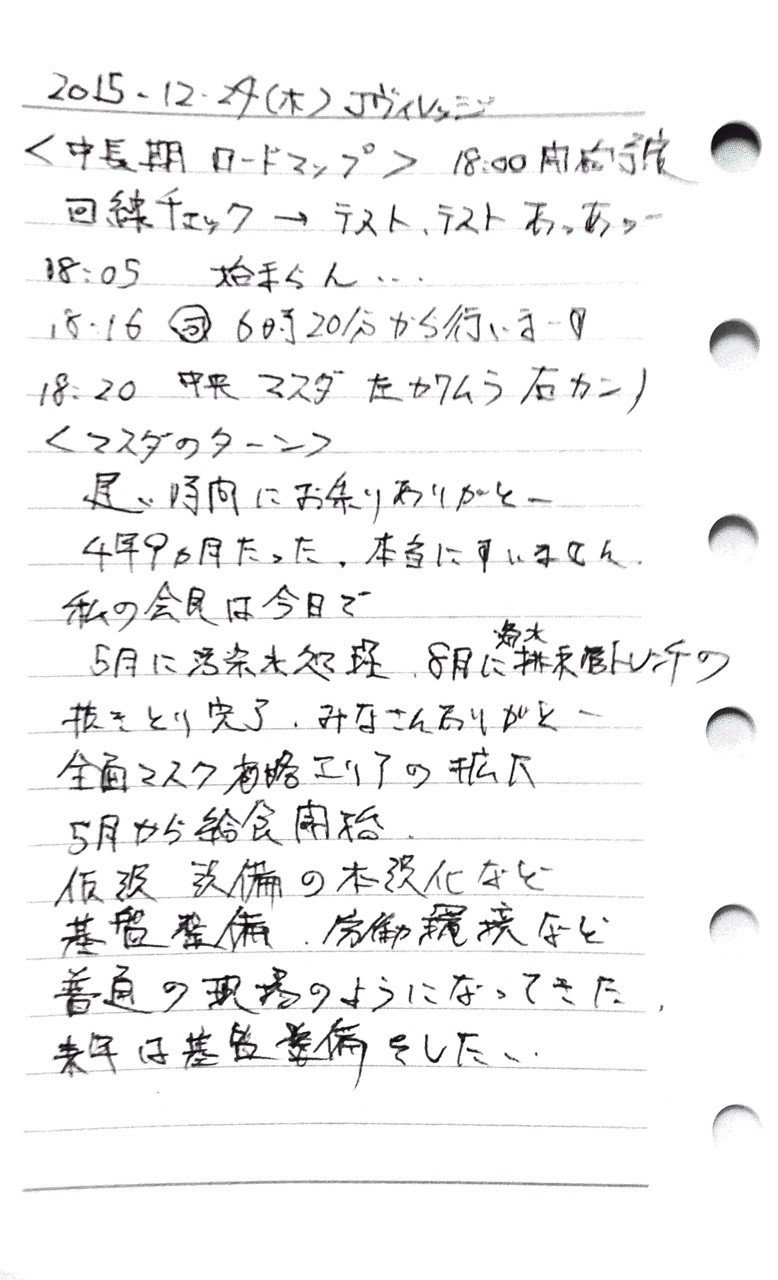 2015.12.24(木) Jヴィレッジ
<中長期 ロードマップ> 18:00 開始予定
回線チェック → テスト、テスト あっあっー
18:05 始まらん…
18:16 司 6時20分から行いまーす
18:20 中央 マスダ 左 カワムラ 右 カン
<マスダのターン>
遅い時間にお集りありがとー
4年9ヵ月たった。本当にすいません。
私の会見は今日で
5月に汚染水処理、8月に海水排
管トレンチの
抜きとり完了、みなさんありがとー
全面マスク省略エリアの拡大
5月から給食開始。
仮設 設備の本設化など
基盤整備、労働環境など
普通の現場のようになってきた。
来年は基盤整備をしたい。